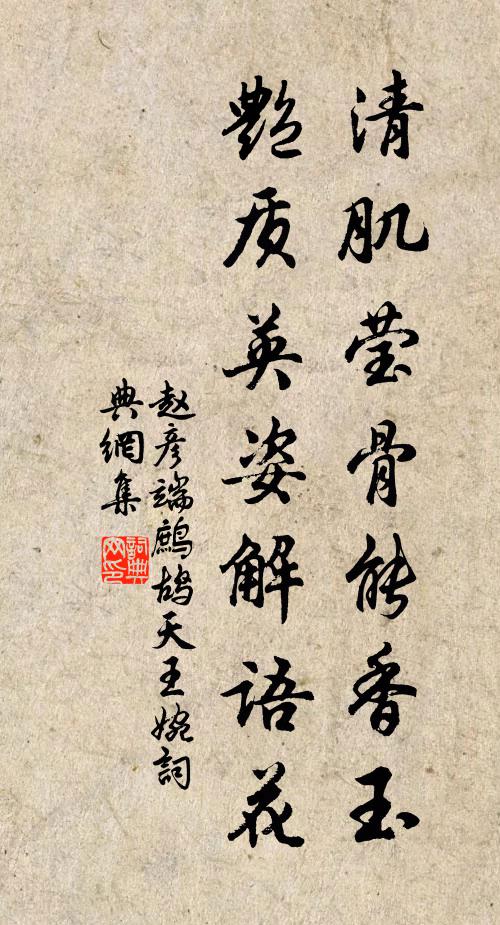 清肌莹骨能香玉
艳质英姿解语花
赵彦端鹧鸪天王婉詞
典網集
詞典
网印